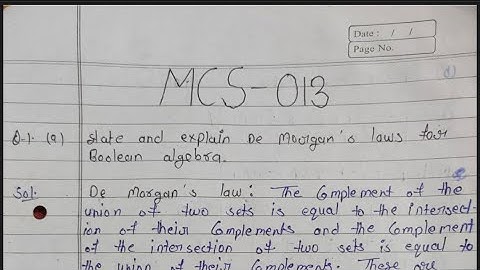 Date : / /
Page No.
MCS-013
Q-1. (a) State and explain De Moorgan's laws for
Boolean algebra.
Sol. De Morgan's law : The Complement of the
union of two sets is equal to the intersect-
ion of their Complements and the Complement
of the intersection of two sets is equal to
the union of their Complements. These are